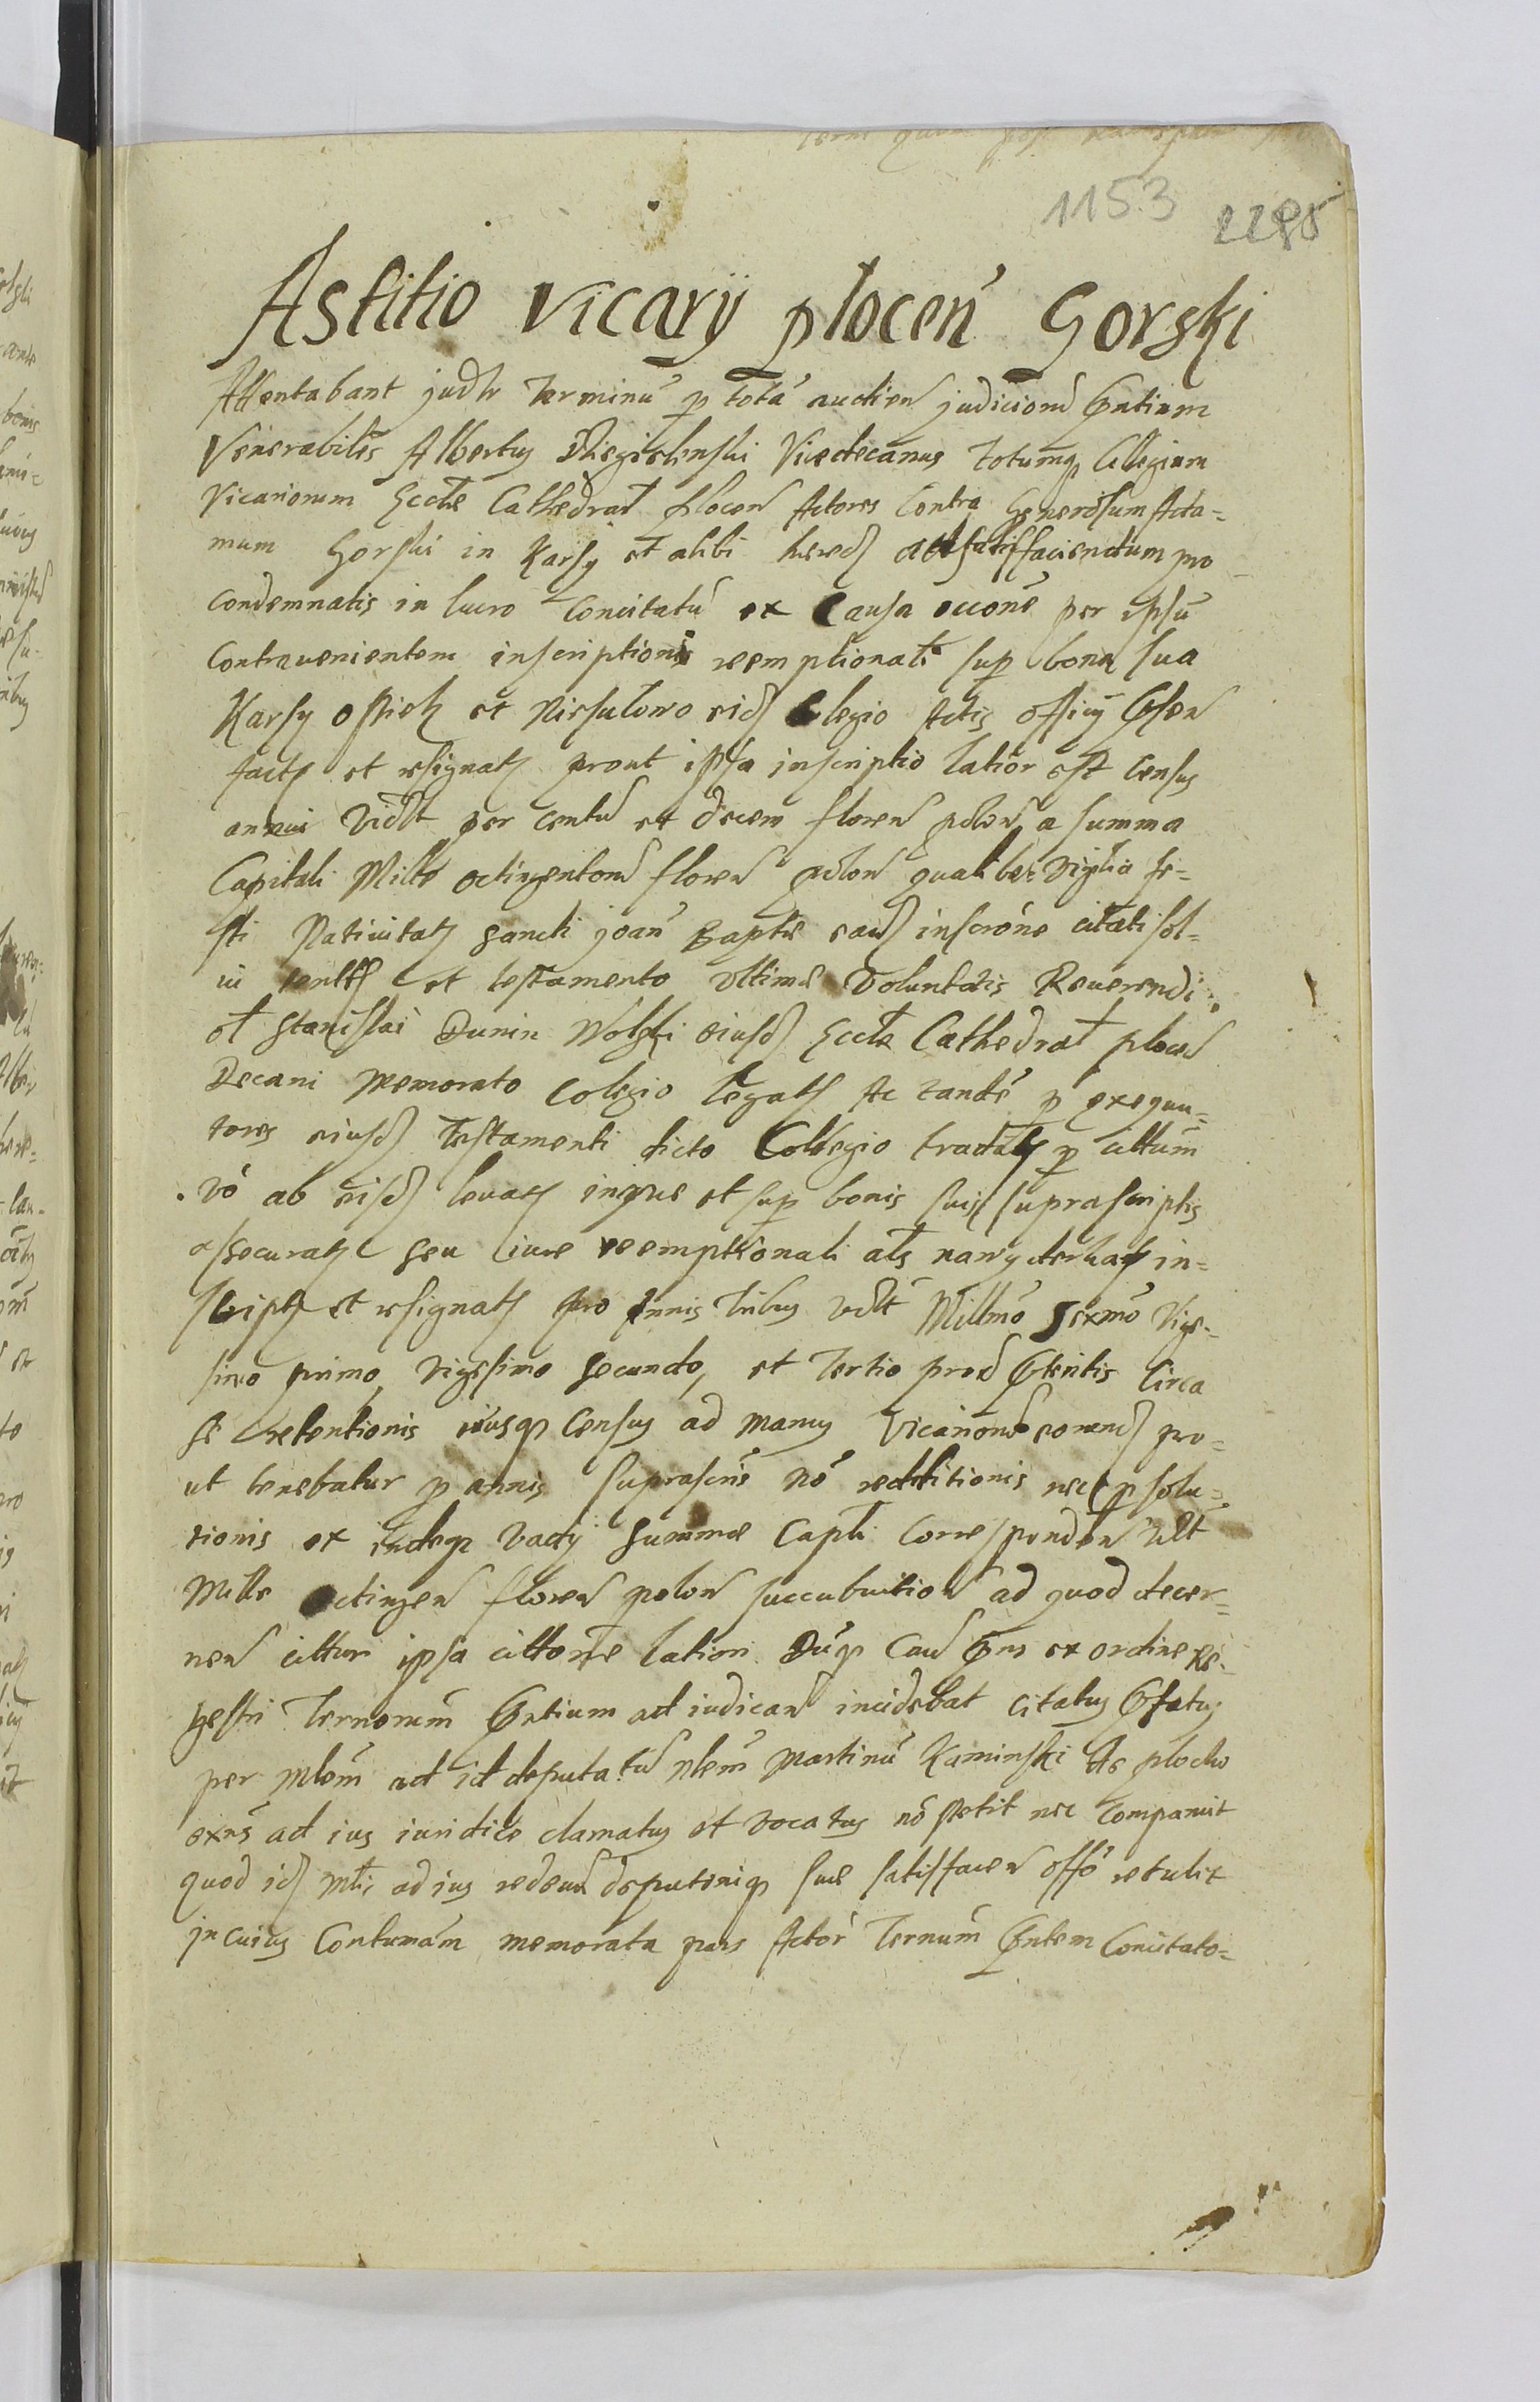 1153 2295
Astitio vicarÿ plocen Gorski
Attentabant judtr Terminũ p totã audien judiciorũ Gntium
Venerabiles Albertus Vicedecanus totumq Collegium
Vicariorum Eccłæ Cathedrał plocen Actores Contra Generosum Ada=
mum Gorski in Karsy et alibi hered ad satisfaciendum pro
condemnatis in lucro Concitatũ ex Causa occone per ipsũ
contrauenientem inscriptionis reemptionali sup bona sua
Karsy et eid Colegio Actis officÿ
facts et resignats prout ipsa inscriptio latior est Census
annui vidłt per centũ et decem floren polon a summa
Capitali Mille octingentorũ floren polon qualibet vigilia fe=
sti Natiuitats sancti joan Baptæ eand inscrone citati sol=
ui et testamento vltimæ voluntatis Reuerendi
ol Stanislai Dunin Wolski eiusd Eccłæ Cathedrał plocen
Decani memorato Colegio legats Ac tandẽ p exequu=
tores eiusd Testamenti dicto Collegio tradits p citatum
vó ab eisd leuats inque et sup bonis suis suprascriptis
assecurats seu iure reemptionali ałs nawyderkaff in=
scipts et resignats pro Annis tribus vdłt Millmo Sexmo Vige=
simo primo, vigesimo secundo, et Tertio prod Circa
se retentionis eiusq Census ad manus Vicariorũ eorund pro=
ut tenebatur p annis suprascris nõ redditionis nec psolu=
tionis et indeq vadÿ summæ Capłi Corresponden vdłt
Mille octingen floren polon succubuition ad quod decer=
nen cittum ipsa cittone latiori Dũq Cau Gns ex ordine Re=
gestri Ternorum Gntium ad iudican incidebat citatus Gfatus
per Młem ad id deputatũ Nłem Martinũ Kaminski de plocko
exns ad ius iuridice clamatus et vocatus nõ stetit nec Comparuit
quod id Młis ad ius redeun deputoniq suæ satisfacien offó retulit
jn cuius Contumãm memorata pars Actor Ternum Gntem Concitato=